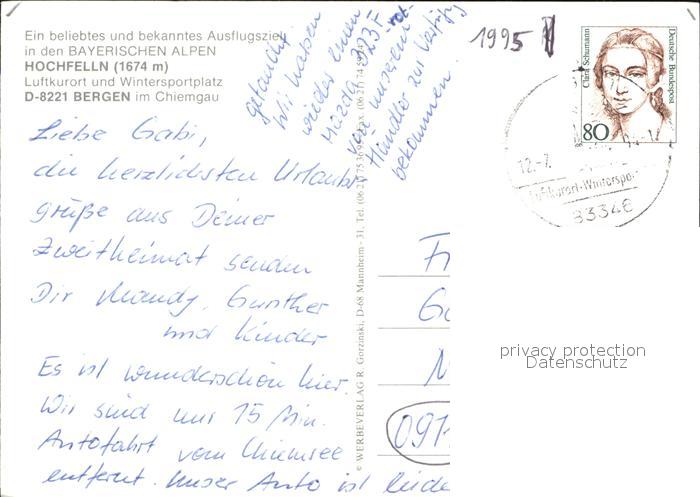 Ein beliebtes und bekanntes Ausflugsziel
in den BAYERISCHEN ALPEN
HOCHFELLN (1674 m)
Luftkurort und Wintersportplatz
D-8221 BERGEN im Chiemgau
Liebe Gabi,
die herzlichsten Urlaubs
grüße aus Deiner
Zweitheimat senden
Dir Mandy, Gunther
und Kinder
Es ist wunderschön hier.
Wir sind nur 15 Min.
Autofahrt vom Chiemsee
entfernt. Unser Auto ist leide
getauscht
Wir haben
wieder einen
Mazda 323F
-rot-
von unserem
Händler zur Verfügung
bekommen.
© WERBEVERLAG R. Gorzinski, D-68 Mannheim - 31, Tel. (06 21) 75 36
1995
Clara Schumann
Deutsche Bundespost
80
12.-7.
Luftkurort-Winterspor
83346
Fr
Ga
M
091
privacy protection
Datenschutz